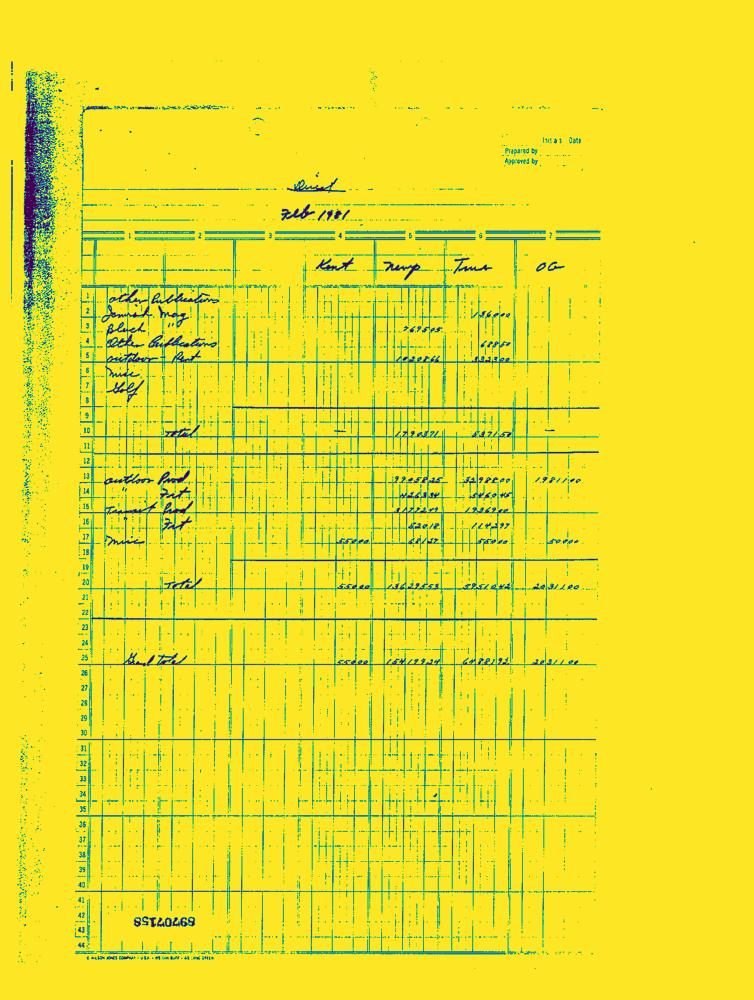 Initials Date
Prepared by
Approved by
Direct
Feb 1981
1 2 3 4 5 6 7
Kent Newp True OG
1 Other Publications
2 Jewish Mag 136000
3 Black " 769505
4 Other Publications 68850
5 Outdoor - Rent 1020866 332300
6 Misc
7 Golf
8
9
10 Total — 1790371 537150 —
11
12
13 Outdoor Prod 9905825 3298800 1981100
14 " Frt 426334 546045
15 Transit Prod 3177249 1936900
16 " Frt 52018 114297
17 Misc 55000 68127 55000 50000
18
19
20 Total 55000 13629553 5951042 2031100
21
22
23
24
25 Grand Total 55000 15419924 6488192 2031100
26
27
28
29
30
31
32
33
34
35
36
37
38
39
40
41
42
43
44
89707158
© WILSON JONES COMPANY U.S.A.